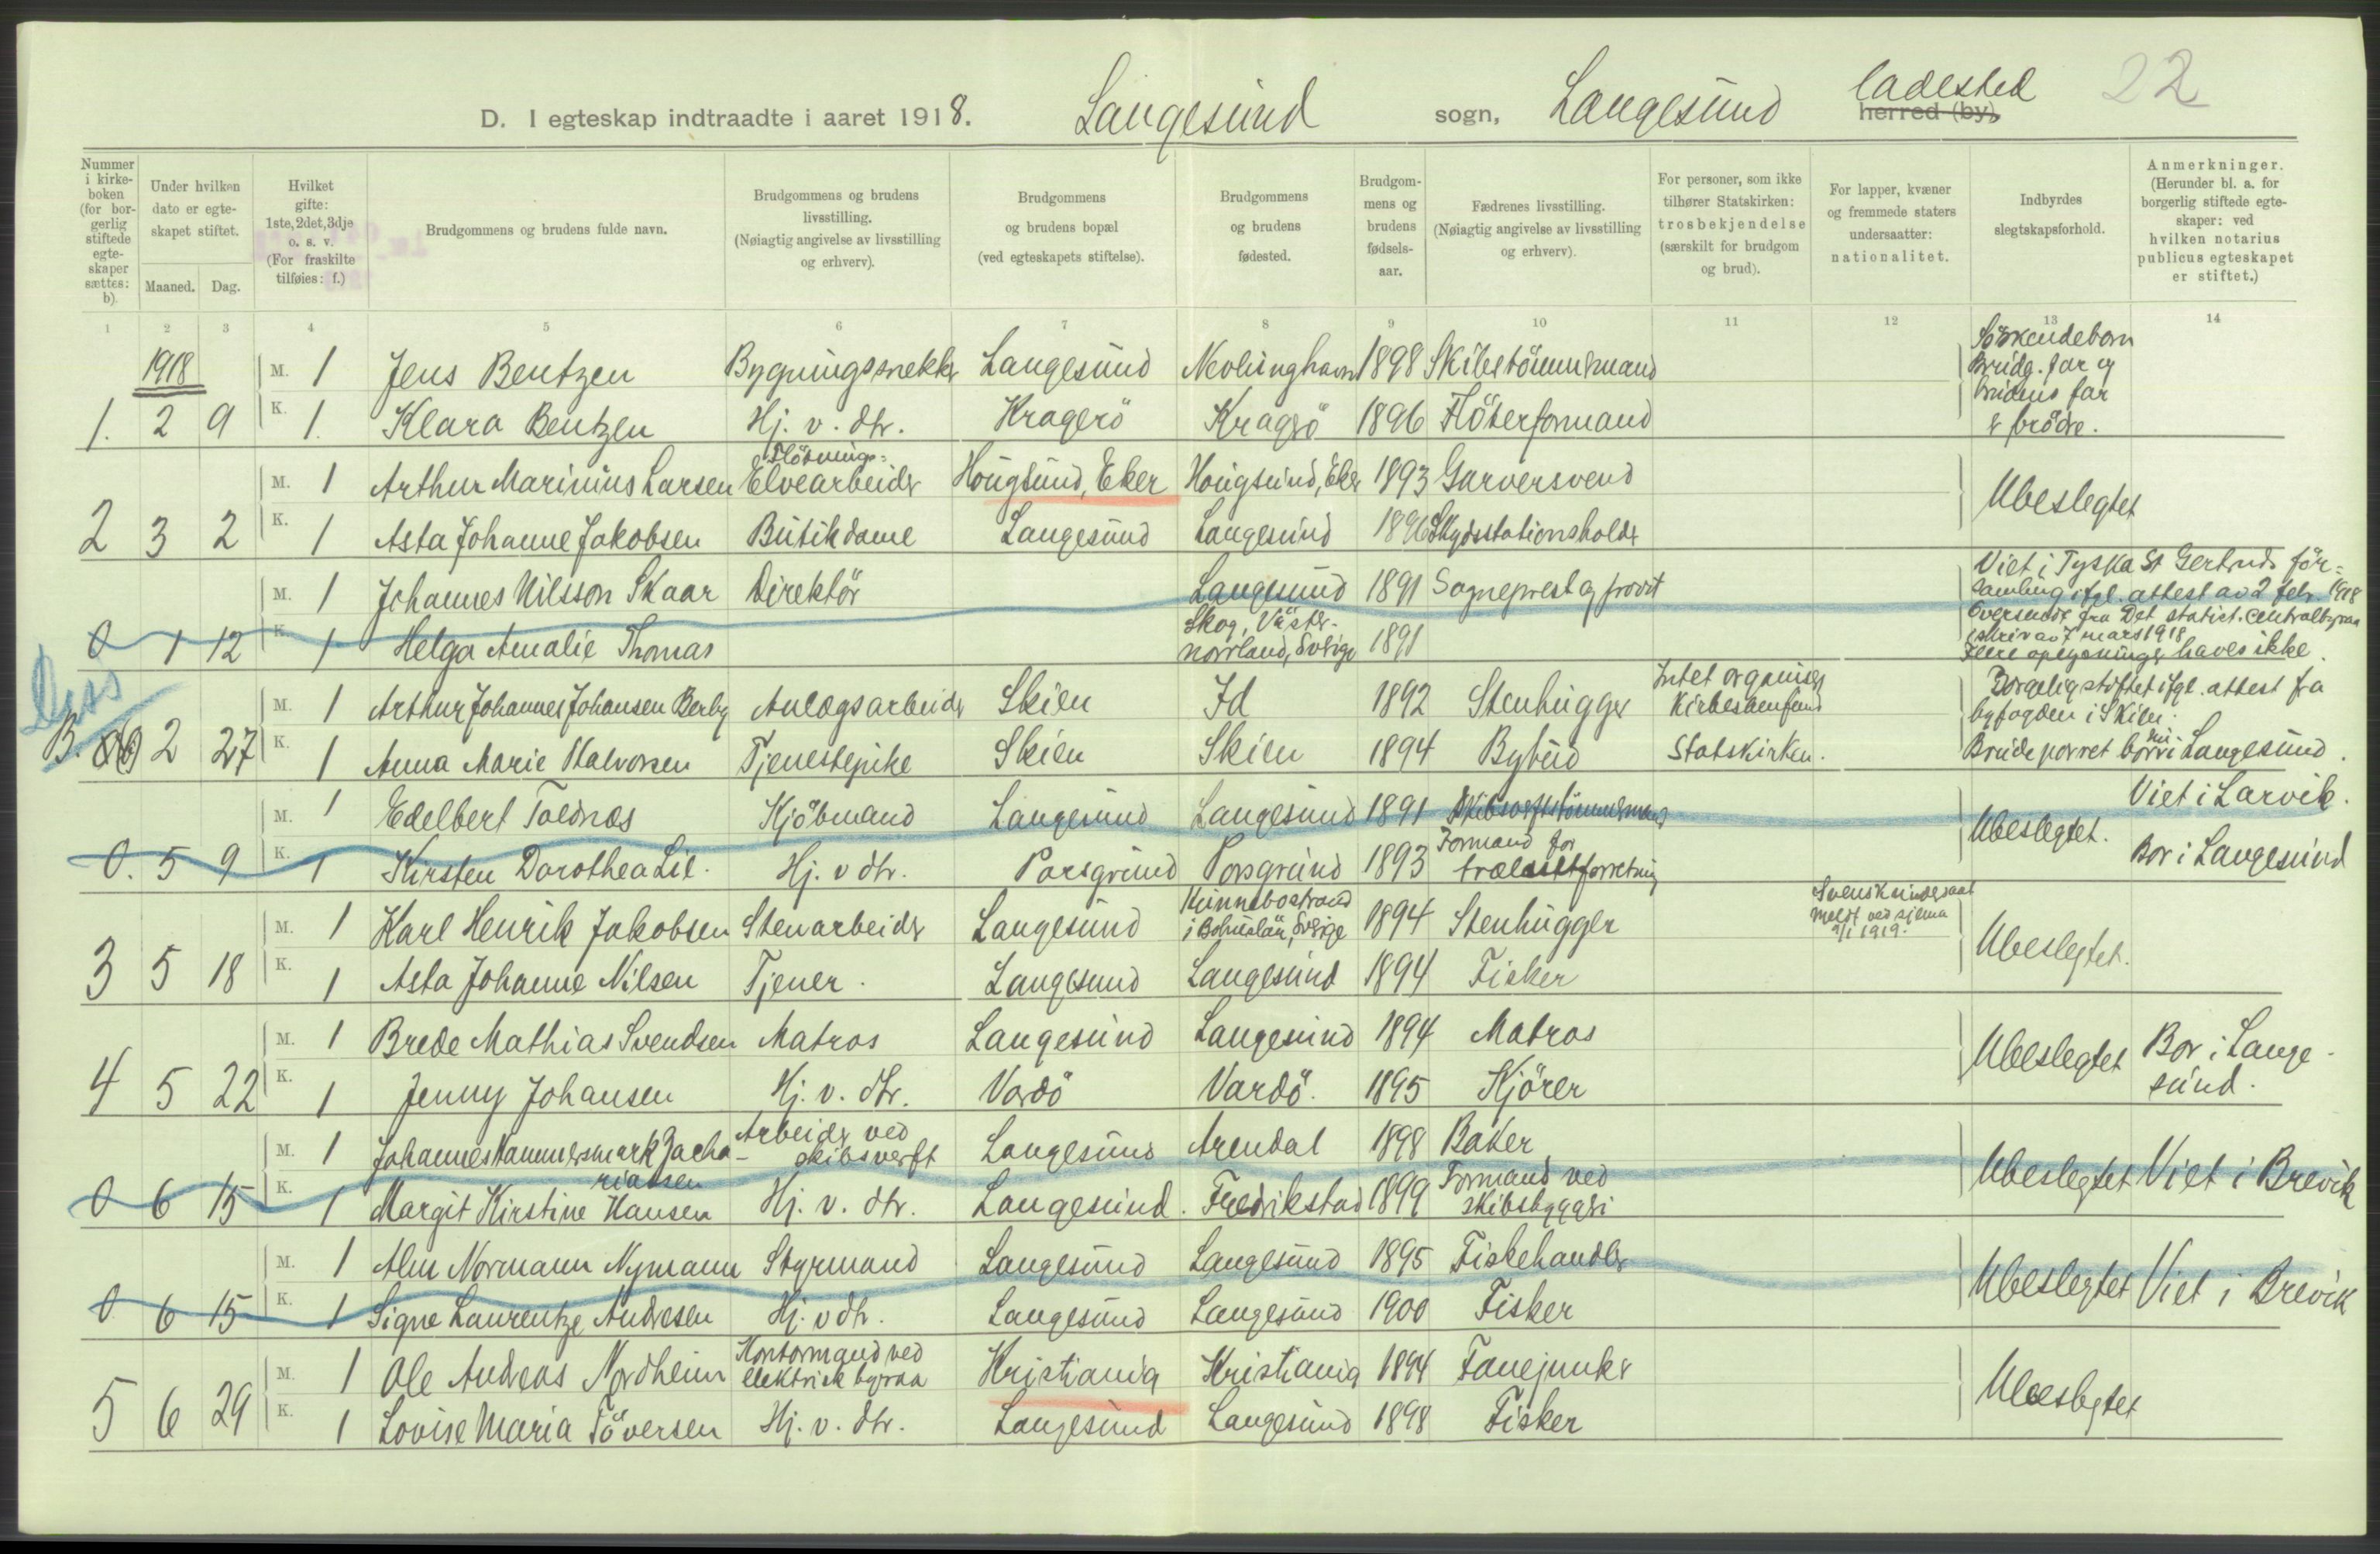 ladested 22
D. I egteskap indtraadte i aaret 1918. Langesund sogn, Langesund herred (by).
Nummer i kirkeboken (for borgerlig stiftede egteskaper sættes: b).
Under hvilken dato er egteskapet stiftet.
Maaned. Dag.
Hvilket gifte: 1ste, 2det, 3dje o. s. v. (For fraskilte tilføies: f.)
Brudgommens og brudens fulde navn.
Brudgommens og brudens livsstilling. (Nøiagtig angivelse av livsstilling og erhverv).
Brudgommens og brudens bopæl (ved egteskapets stiftelse).
Brudgommens og brudens fødested.
Brudgommens og brudens fødselsaar.
Fædrenes livsstilling. (Nøiagtig angivelse av livsstilling og erhverv).
For personer, som ikke tilhører Statskirken: trosbekjendelse (særskilt for brudgom og brud).
For lapper, kvæner og fremmede staters undersaatter: nationalitet.
Indbyrdes slegtskapsforhold.
Anmerkninger. (Herunder bl. a. for borgerlig stiftede egteskaper: ved hvilken notarius publicus egteskapet er stiftet.)
1 2 3 4 5 6 7 8 9 10 11 12 13 14
1918 M. 1 Jens Bentzen Bygningssnekker Langesund Nevlunghavn 1898 Skibstömmermand Söskendebarn
Brudg. far og
brudens far
1. 2 9 K. 1. Klara Bentzen Hj. v. dtr. Kragerö Kragerö 1896 Flöterformand er brödre.
Flötnings-
M. 1 Arthur Marinius Larsen Elvearbeider Hougsund, Eker Hougsund, Eker 1893 Garversvend Ubeslegtet
2 3 2 K. 1 Asta Johanne Jakobsen Butikdame Langesund Langesund 1896 Skydsstationsholder
M. 1 Johannes Nilsson Skaar Direktör Langesund 1891 Sogneprest og provst Viet i Tyska St Gertruds för-
samling ifgl. attest av 2 febr. 1918
Oversendt fra Det statist. centralbyraa
i skriv av 7 mars 1918
0 1 12 K. 1 Helga Amalie Thomas Skog, Väster-
norrland, Sverige 1891 Flere oplysninger haves ikke.
M. 1 Arthur Johannes Johansen Berby Anlægsarbeider Skien Id 1892 Stenhugger Intet organiser
kirkesamfund Borgerlig stiftet ifgl. attest fra
byfogden i Skien.
B. 2 27 K. 1 Anna Marie Halvorsen Tjenestepike Skien Skien 1894 Bybud Statskirken. Brudeparret bor nu i Langesund.
M. 1 Edelbert Toldnæs Kjöbmand Langesund Langesund 1891 Skibsverftstömmermand Ubeslegtet. Viet i Larvik.
0. 5 9 K. 1 Kirsten Dorothea Lie. Hj. v dtr. Porsgrund Porsgrund 1893 Formand for
trælastforretning Bor i Langesund
M. 1 Karl Henrik Jakobsen Stenarbeider Langesund Hunnebostrand
i Bohuslän, Sverige 1894 Stenhugger Svensk undersaat
meldt ved skjema
1919. Ubeslegtet.
3 5 18 K. 1 Asta Johanne Nilsen Tjener. Langesund Langesund 1894 Fisker
M. 1 Brede Mathias Svendsen Matros Langesund Langesund 1894 Matros Ubeslegtet Bor i Lange-
4 5 22 K. 1 Jenny Johansen Hj. v. dtr. Vardö Vardö. 1895 Kjörer sund.
M. 1 Johannes Hammersmark Zacha-
riassen Arbeider ved
skibsverft Langesund Arendal 1898 Baker Ubeslegtet Viet i Brevik
0 6 15 K. 1 Margit Kirstine Hansen Hj. v. dtr. Langesund. Fredrikstad 1899 Formand ved
skibsbyggeri
M. 1 Alm Normann Nymann Styrmand Langesund Langesund 1895 Fiskehandler Ubeslegtet Viet i Brevik
0 6 15 K. 1 Signe Laurentze Andresen Hj. v dtr. Langesund Langesund 1900 Fisker
M. 1 Ole Andreas Nordheim Kontormand ved
elektrisk byraa Kristiania Kristiania 1894 Fanejunker Ubeslegtet
5 6 29 K. 1 Lovise Maria Töversen Hj. v. dtr. Langesund Langesund 1898 Fisker